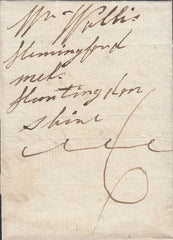 Mr Wallis
Hemingford
near
Huntingdon
shire
6